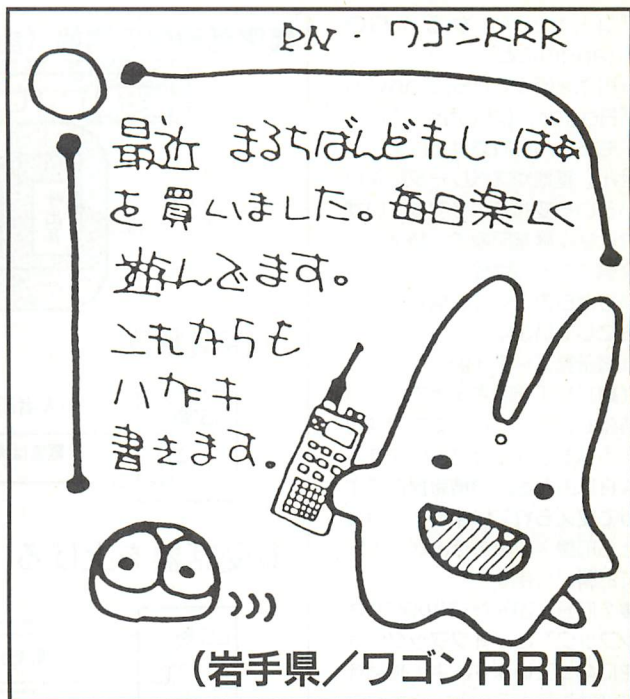 PN・ワゴンRRR
最近 まるちばんどれしーばぁ
を買いました。毎日楽しく
遊んでます。
これからも
ハガキ
書きます.
(岩手県／ワゴンRRR)